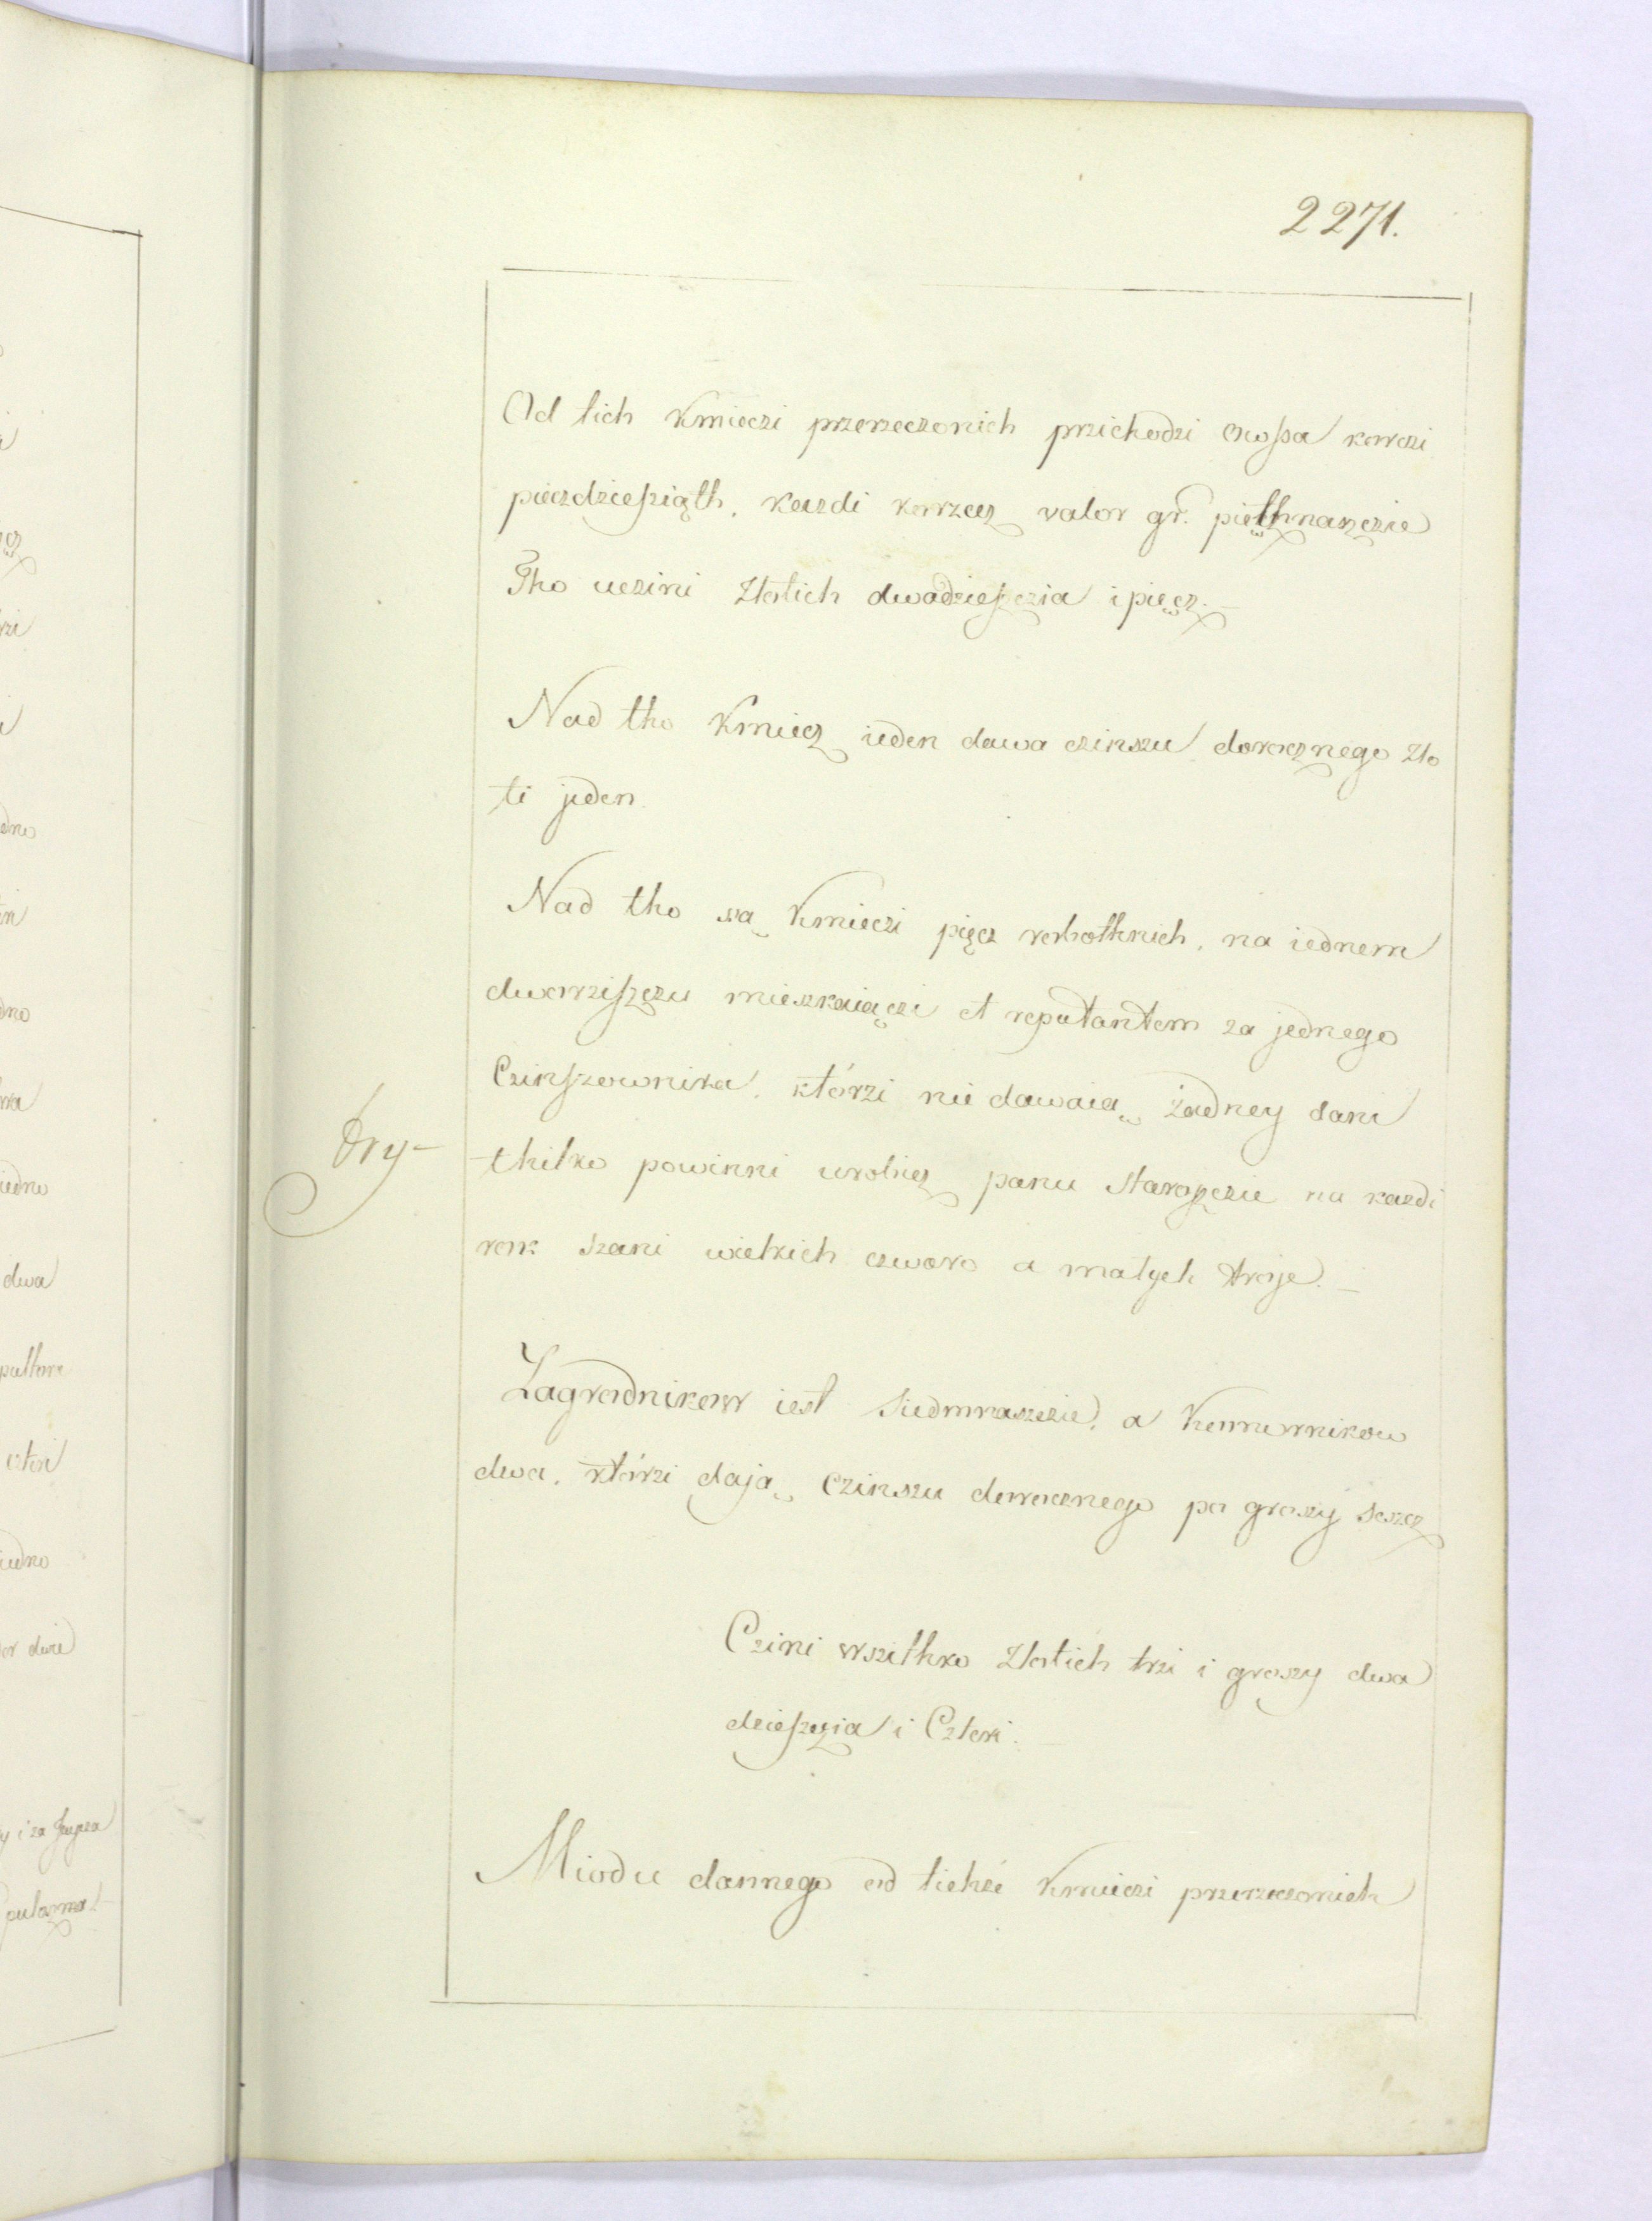 2271.
Od tich Kmieczi przerzeczonich przichodzi owsa korczi
pieczdziesziąth. Kazdi korzecz valor gr. pięthnasczie
Tho uczini Złotich dwadziesczia i pięcz.
Nad tho Kmiecz ieden dawa czinszu dorocznego Zło
ti jeden.
Nad tho są Kmieczi pięcz robothnich, na iednem
dworziszczu mieszkaiączi et reputantem za jednego
Czinszownika. którzi nie dawaią żadney dani
thilko powinni urobicz panu staroszczie na kazdi
rok szani wielkich czworo a małych troje.
Zagrodnikow iest siedmnasczie, a Komornikow
dwa. którzi dają Czinszu dorocznego po groszy sescz
Czini wszithko Złotich trzi i groszy dwa
dzieszczia i Czteri.
Miodu dannego od tichże Kmieczi przerzeczonich